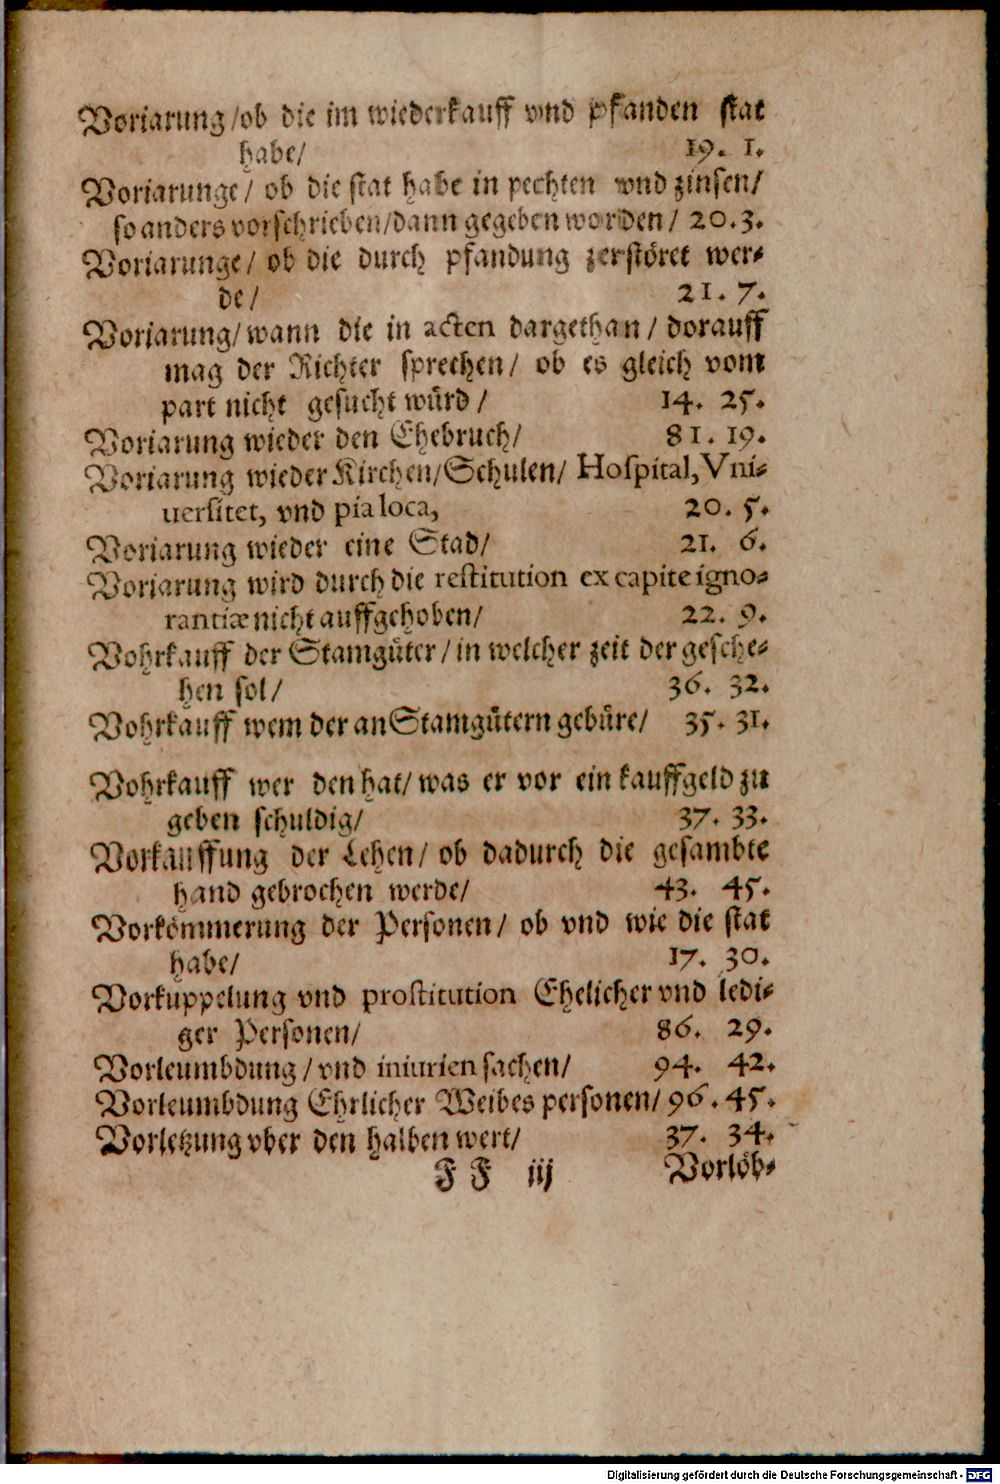 Voriarung/ob die im wiederkauff vnd pfanden stat
habe/ 19. 1.
Voriarunge/ ob die stat habe in pechten vnd zinsen/
so anders vorschrieben/dann gegeben worden/ 20.3.
Voriarunge/ ob die durch pfandung zerstöret wer-
de/ 21. 7.
Voriarung/wann die in acten dargethan/ dorauff
mag der Richter sprechen/ ob es gleich vom
part nicht gesucht würd/ 14. 25.
Voriarung wieder den Ehebruch/ 81. 19.
Voriarung wieder Kirchen/Schulen/ Hospital, Vni-
uersitet, vnd pia loca, 20. 5.
Voriarung wieder eine Stad/ 21. 6.
Voriarung wird durch die restitution ex capite igno-
rantiæ nicht auffgehoben/ 22. 9.
Vohrkauff der Stamgüter/in welcher zeit der gesche-
hen sol/ 36. 32.
Vohrkauff wem der an Stamgütern gebüre/ 35. 31.
Vohrkauff wer den hat/was er vor ein kauffgeld zu
geben schuldig/ 37. 33.
Vorkauffung der Lehen/ ob dadurch die gesambte
hand gebrochen werde/ 43. 45.
Vorkömmerung der Personen/ ob vnd wie die stat
habe/ 17. 30.
Vorkuppelung vnd prostitution Ehelicher vnd ledi-
ger Personen/ 86. 29.
Vorleumbdung/vnd iniurien sachen/ 94. 42.
Vorleumbdung Ehrlicher Weibes personen/ 96.45.
Vorletzung vber den halben wert/ 37. 34.
F F iij Vorlöb-
Digitalisierung gefördert durch die Deutsche Forschungsgemeinschaft - DFG